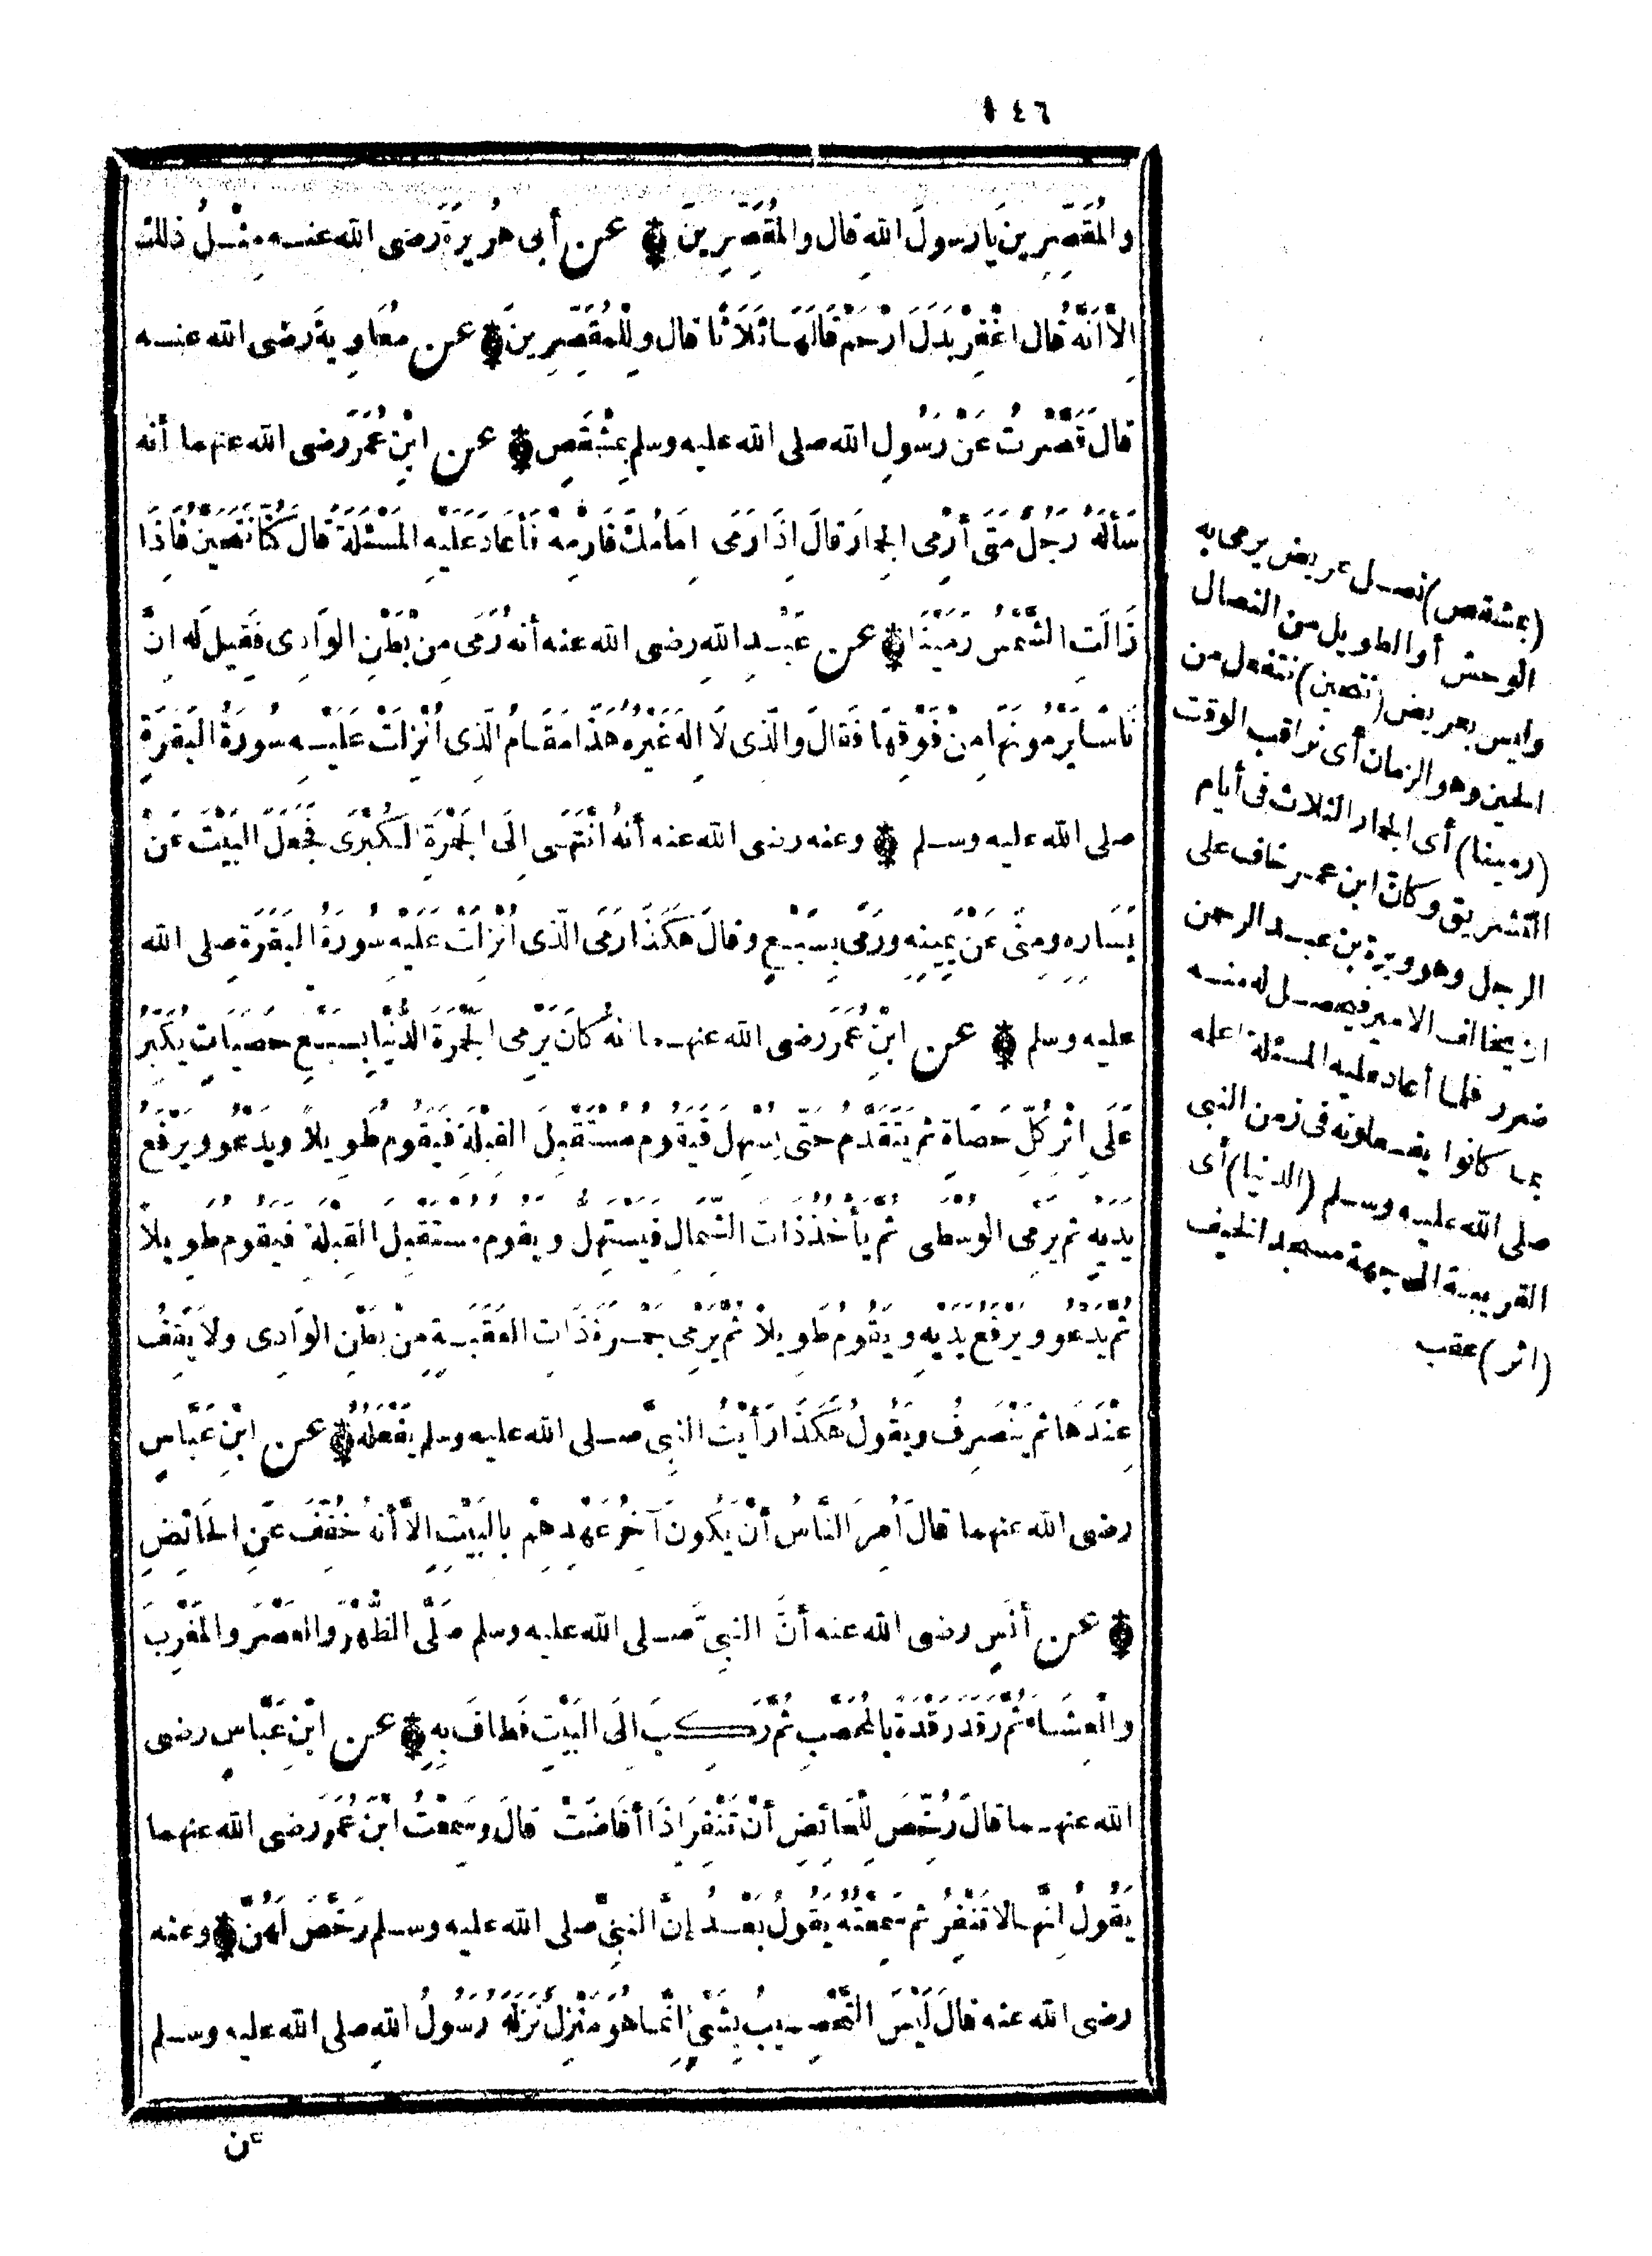 ١٤٦
والمُقَصِّرِينَ يَارسولَ اللهِ قال والمُقَصِّرِينَ ۞ عن أبى هُرَيْرَةَ رضى الله عنه مِثْلُ ذلك
اِلَّا أَنَّهُ قال اغْفِرْ بَدَلَ ارْحَمْ قَالَهَا ثَلَاثًا قال ولِلْمُقَصِّرِينَ ۞ عن مُعَاوِيَةَ رضى الله عنه
قالَ قَصَّرْتُ عَنْ رَسُولِ الله صلى الله عليه وسلم بِمِشْقَصٍ ۞ عن ابْنِ عُمَرَ رضى الله عنهما أنه
سَأَلَهُ رَجُلٌ مَتَى أَرْمِى الجِمَارَ قالَ اِذَا رَمَى اِمَامُكَ فَارْمِهْ فَأَعَادَ عَلَيْهِ المَسْئَلَةَ قَالَ كُنَّا نَتَحَيَّنُ فَاِذَا
زَالَتِ الشَّمْسُ رَمَيْنَا ۞ عن عَبْدِ اللهِ رضى الله عنه أنه رَمَى مِنْ بَطْنِ الوَادِى فَقِيلَ لَه اِنَّ
نَاسًا يَرْمُونَهَا مِنْ فَوْقِهَا فَقَالَ والَّذِى لَا اِلَهَ غَيْرُهُ هَذَا مَقَامُ الَّذِى أُنْزِلَتْ عَلَيْهِ سُورَةُ البَقَرَةِ
صلى الله عليه وسلم ۞ وعنه رضى الله عنه أَنهُ انْتَهَى اِلَى الجَمْرَةِ الكُبْرَى فَجَعَلَ البَيْتَ عَنْ
يَسَارِهِ ومِنًى عَنْ يَمِينِهِ ورَمَى بِسَبْعٍ وقالَ هَكَذَا رَمَى الَّذِى أُنْزِلَتْ عَلَيْهِ سُورَةُ البَقَرَةِ صلى الله
عليه وسلم ۞ عن ابْنِ عُمَرَ رضى الله عنهما انَّهُ كَانَ يَرْمِى الجَمْرَةَ الدُّنْيَا بِسَبْعِ حَصَيَاتٍ يُكَبِّرُ
عَلَى اِثْرِ كُلِّ حَصَاةٍ ثم يَتَقَدَّمُ حتَّى يُسْهِلَ فَيَقُومُ مُسْتَقْبِلَ القِبْلَةِ فَيَقُومُ طَوِيلًا ويَدْعُو ويَرْفَعُ
يَدَيْهِ ثم يَرْمِى الوُسْطَى ثُمَّ يَأْخُذُ ذَاتَ الشِّمَالِ فَيَسْتَهِلُّ ويَقُومُ مستَقْبِلَ القِبْلَةِ فَيَقُومُ طَوِيلًا
ثُم يَدْعُو ويَرْفَعُ يَدَيْهِ ويَقُومُ طَوِيلًا ثُمَّ يَرْمِى جمرَةَ ذَاتِ العَقَبَةِ مِنْ بَطْنِ الوَادِى ولَا يَقِفُ
عِنْدَهَا ثم يَنْصَرِفُ ويَقُولُ هَكَذَا رَأَيْتُ النبِىَّ صلى الله عليه وسلم يَفْعَلُهُ ۞ عن ابْنِ عَبَّاسٍ
رضى الله عنهما قالَ أُمِرَ النَّاسُ أَنْ يَكُونَ آخِرُ عَهْدِهِمْ بالبَيْتِ اِلَّا أَنهُ خُفِّفَ عَنِ الحَائِضِ
۞ عن أنَسٍ رضى الله عنه أنَّ النبِىَّ صلى الله عليه وسلم صَلَّى الظُّهْرَ والعَصْرَ والمَغْرِبَ
والعِشَاءَ ثُمَّ رَقَدَ رَقْدَةً بالمُحَصَّبِ ثُمَّ رَكِبَ اِلَى البَيْتِ فَطَافَ بِهِ ۞ عن ابْنِ عَبَّاسٍ رضى
الله عنهما قالَ رُخِّصَ لِلْحَائِضِ أنْ تَنْفِرَ اِذَا أفَاضَتْ قالَ وسَمِعْتُ ابْنَ عُمَرَ رضى الله عنهما
يَقُولُ اِنَّهَا لا تَنْفِرُ ثم سَمِعْتُهُ يَقُولُ بَعْدُ إِنَّ النبِىَّ صلى الله عليه وسلم رَخَّصَ لَهُنَّ ۞ وعنه
رضى الله عنه قالَ لَيْسَ التَّحْصِيبُ بِشَىْءٍ اِنَّمَا هُوَ مَنْزِلٌ نَزَلَهُ رَسُولُ اللهِ صلى الله عليه وسلم
عن
(بمشقص) نصل عريض يرمى به
الوحش أو الطويل من النصال
وليس بعريض (نتحين) نتفعل من
الحين وهو الزمان أى نراقب الوقت
(رمينا) أى الجمار الثلاث فى أيام
التشريق وكان ابن عمر خاف على
الرجل وهو وبرة بن عبد الرحمن
ان يخالف الامير فيحصل له منه
ضرر فلما أعاد عليه المسئلة اعلمه
بما كانوا يفعلونه فى زمن النبى
صلى الله عليه وسلم (الدنيا) أى
القريبة الى جهة مسجد الخيف
(اثر) عقب